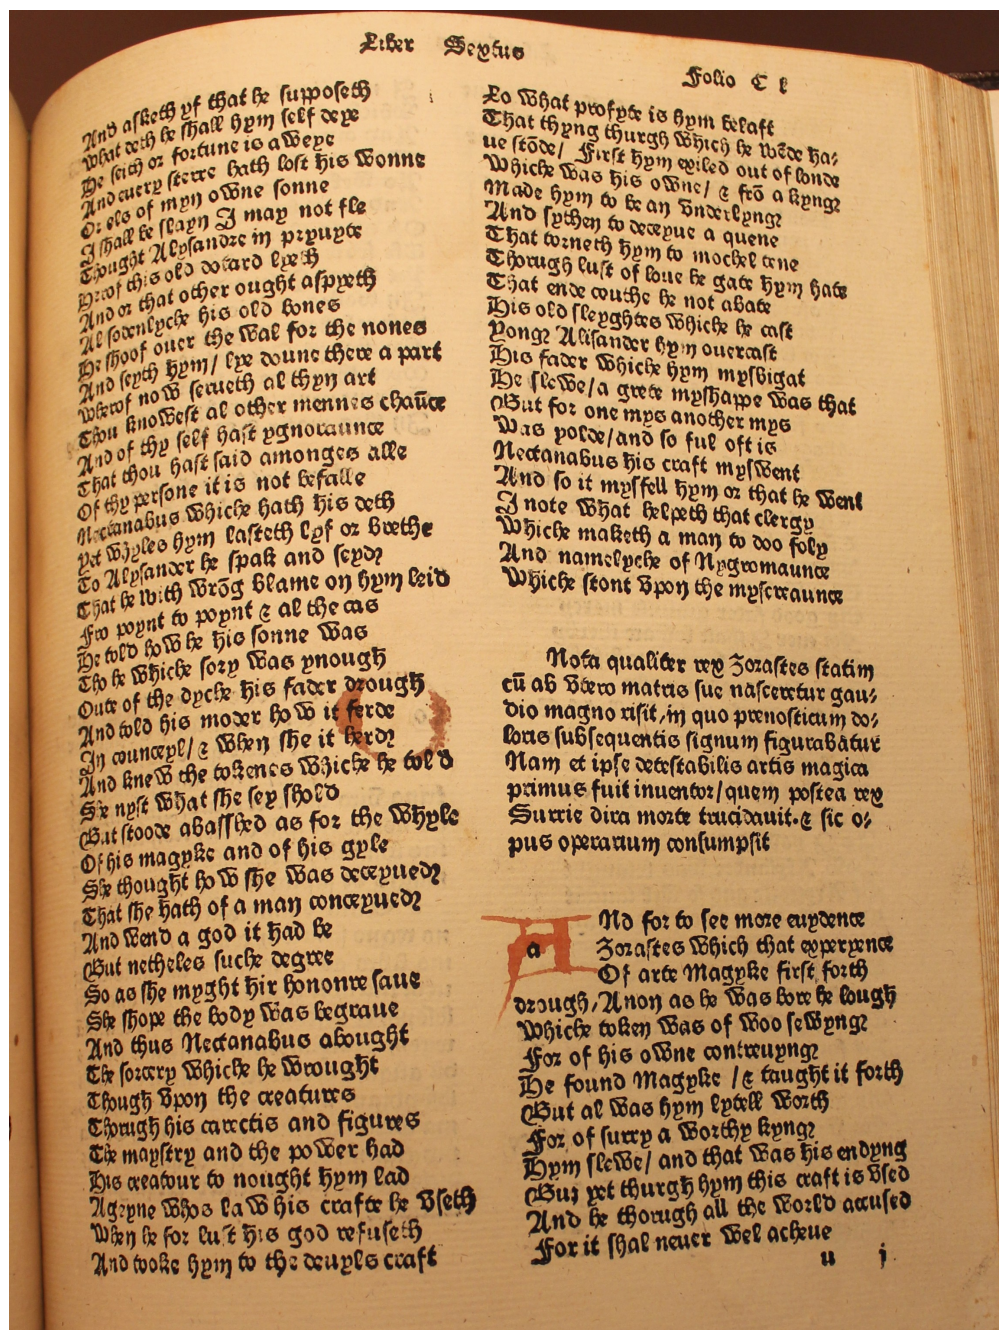 Liber Sextus
Folio C l
And asketh yf that he supposeth
What deth he shall hym self deye
He seith or fortune is aweye
And euery sterre hath lost his wonne
Or els of myn owne sonne
I shall be slayn I may not fle
Thought Alysandre in pryuyte
Herof this old dotard lyeth
And or that other ought aspyeth
Al sodenlyche his old bones
He shoof ouer the wal for the nones
And seyth hym/ lye doune there a part
Wherof now serueth al thyn art
Thou knowest al other mennes chaūce
And of thy self hast ygnoraunce
That thou hast said amonges alle
Of thy persone it is not befalle
Nectanabus whiche hath his deth
Yet whyles hym lasteth lyf or brethe
To Alysander he spak and seyde
That he with wrōg blame on hym leid
Fro poynt to poynt & al the cas
He told how he his sonne was
Tho he whiche sory was ynough
Oute of the dyche his fader drough
And told his moder how it ferde
In counceyl/ & when she it herde
And knew the tokenes whiche he told
She nyst what she sey shold
But stoode abasshed as for the whyle
Of his magyke and of his gyle
She thought how she was deceyued
That she hath of a man conceyued
And wend a god it had be
But netheles suche degree
So as she myght hir honoure saue
She shope the body was begraue
And thus Nectanabus abought
The sorcery whiche he wrought
Though vpon the creatures
Thorugh his carectis and figures
The maystry and the power had
His creatour to nought hym lad
Ageyne whos law his crafte he vseth
When he for lust his god refuseth
And tooke hym to the deuyls craft
Lo what profyte is hym belaft
That thyng thurgh which he wēde ha⸗
ue stōde/ First hym exiled out of londe
Whiche was his owne/ & frō a kynge
Made hym to be an vnderlynge
And sythen to deceyue a quene
That torneth hym to mochel tene
Thorugh lust of loue he gate hym hate
That ende couthe he not abate
His old sleyghtes whiche he cast
Yonge Alisander hym ouercast
His fader whiche hym mysbigat
He slewe/ a grete myshappe was that
But for one mys another mys
Was yolde/ and so ful oft is
Nectanabus his craft myswent
And so it mysfell hym or that he went
I note what helpeth that clergy
Whiche maketh a man to doo foly
And namelyche of Nygromaunce
Whiche stont vpon the myscreaunce
Nota qualiter rex Zorastes statim
cū ab vtero matris sue nasceretur gau⸗
dio magno risit, in quo pronosticum do⸗
loris subsequentis signum figurabātur
Nam et ipse detestabilis artis magica
primus fuit inuentor/ quem postea rex
Surrie dira morte trucidauit. & sic o⸗
pus operarium consumpsit
aNd for to see more euydence
Zorastes which that experyence
Of arte Magyke first forth
drough, Anon as he was bore he lough
Whiche token was of woo sewynge
For of his owne contreuynge
He found Magyke / & taught it forth
But al was hym lytell worth
For of surry a worthy kynge
Hym slewe/ and that was his endyng
But yet thurgh hym this craft is vsed
And he thorugh all the world accused
For it shal neuer wel acheue
u j